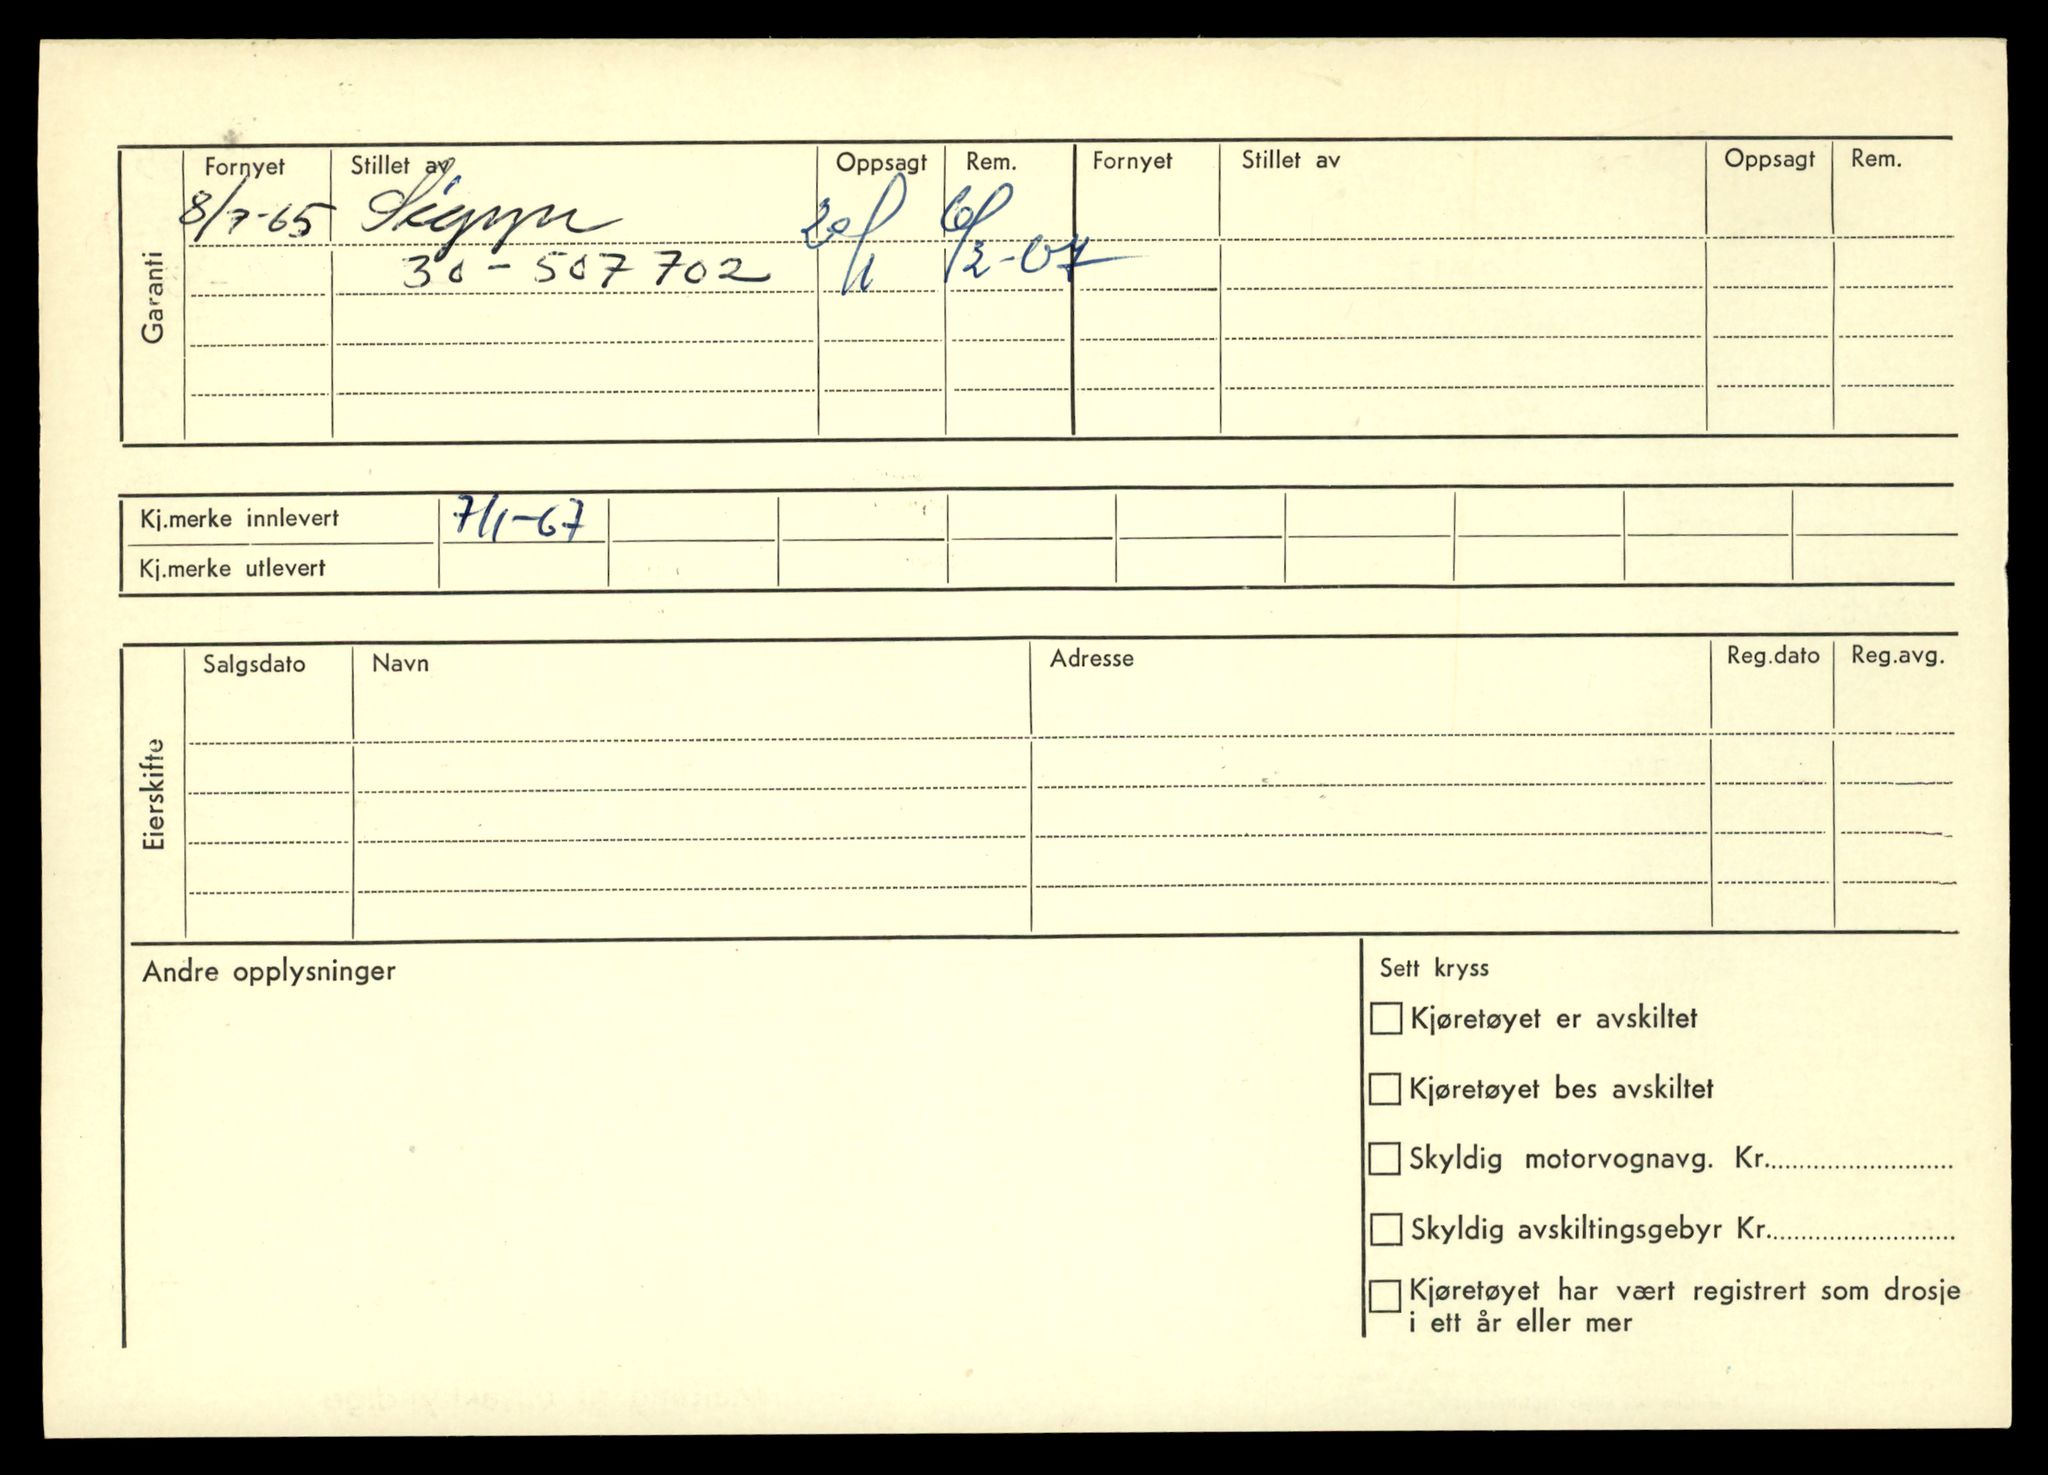 Garanti
Fornyet Stillet av Oppsagt Rem. Fornyet Stillet av Oppsagt Rem.
8/7-65 Sigyn 20/1 6/2-67
30-507702
Kj.merke innlevert 7/1-67
Kj.merke utlevert
Eierskifte
Salgsdato Navn Adresse Reg.dato Reg.avg.
Andre opplysninger
Sett kryss
Kjøretøyet er avskiltet
Kjøretøyet bes avskiltet
Skyldig motorvognavg. Kr.
Skyldig avskiltingsgebyr Kr.
Kjøretøyet har vært registrert som drosje
i ett år eller mer